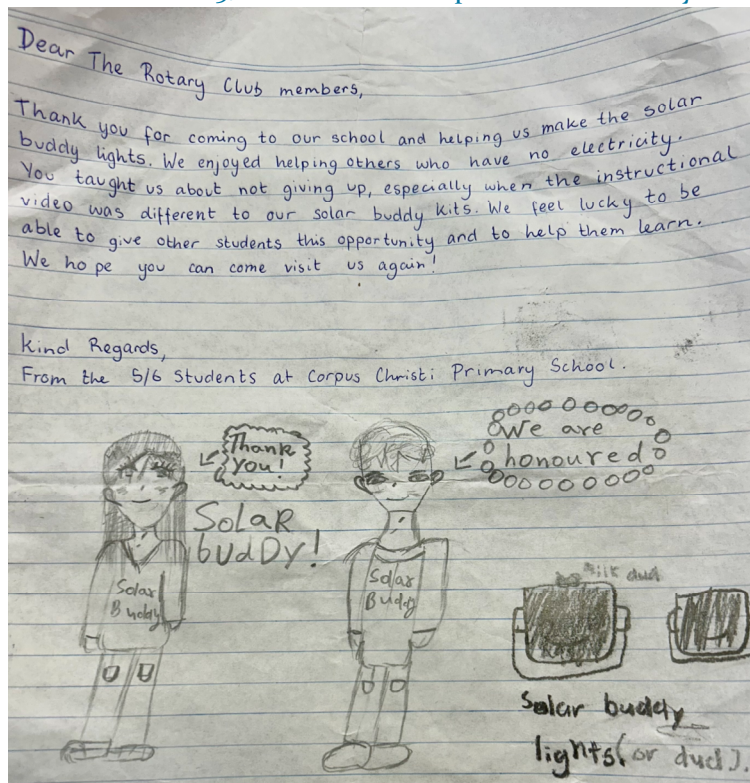 Dear The Rotary Club members,
Thank you for coming to our school and helping us make the solar
buddy lights. We enjoyed helping others who have no electricity.
You taught us about not giving up, especially when the instructional
video was different to our solar buddy kits. We feel lucky to be
able to give other students this opportunity and to help them learn.
We hope you can come visit us again!
Kind Regards,
From the 5/6 Students at Corpus Christi Primary School.
Thank
you!
SOLAR
buDDY!
We are
honoured
Solar
Buddy
Solar
Buddy
dud
Solar buddy
lights(or dud).